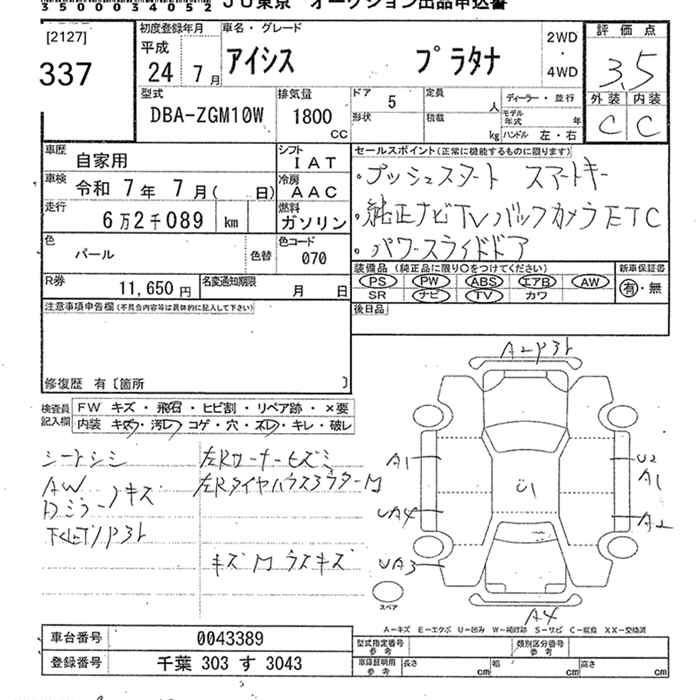 35000034052 JU東京 オークション出品申込書
[2127]
337
初度登録年月
平成
24年7月
車名・グレード
アイシス プラタナ
2WD・4WD
評価点
3.5
外装 内装
C C
型式
DBA-ZGM10W
排気量
1800
CC
ドア 5
形状
定員 人
積載 kg
ディーラー・並行
モデル年式 年
ハンドル 左・右
車歴
自家用
シフト
IAT
車検
令和 7年 7月( 日)
冷房
AAC
走行
6万2千089 km
燃料
ガソリン
色
パール
色替
色コード
070
R券
11,650円
名変通知期限
月 日
セールスポイント(正常に機能するものに限ります)
・プッシュスタート スマートキー
・純正ナビTVバックカメラETC
・パワースライドドア
装備品(純正品に限り○をつけてください)
PS PW ABS エアB AW
SR ナビ TV カワ
新車保証書
有・無
後日品
注意事項申告欄(不具合内容等は具体的に記入して下さい)
修復歴 有〔箇所 〕
検査員記入欄
FW キズ・飛石・ヒビ割・リペア跡・×要
内装 キズ・汚レ・コゲ・穴・スレ・キレ・破レ
シートシミ
AW
Dミラーノキズ
左Rコーナーヒズミ
左Rタイヤハウス
キズ 小 ラスキズ
A1
UA4
UA3
U1
U2
A1
A2
A4
スペア
A-キズ E-エクボ U-凹み W-補修跡 S-サビ C-腐食 XX-交換済
車台番号
0043389
登録番号
千葉 303 す 3043
型式指定番号
参考
類別区分番号
参考
車庫証明用
参考
長さ cm 幅 cm 高さ cm